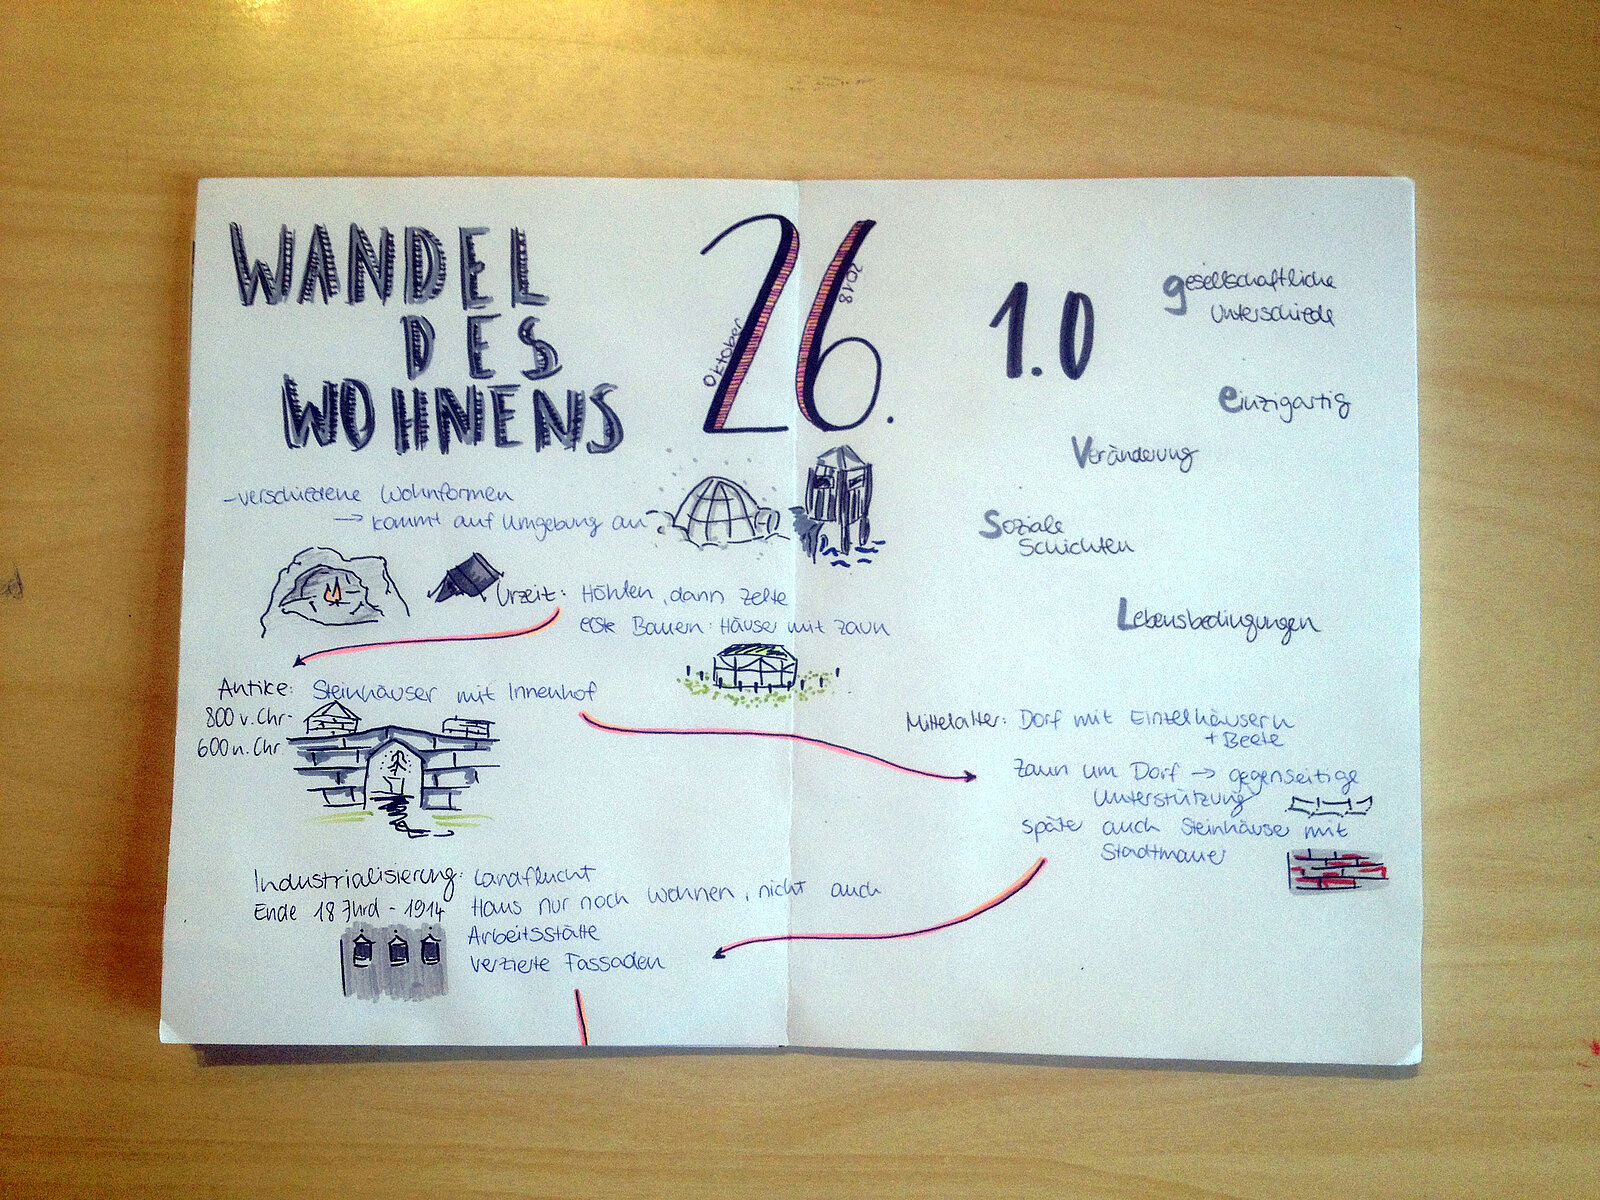 WANDEL
DES
WOHNENS
26.
Oktober
2018
1.0
gesellschaftliche
Unterschiede
einzigartig
Veränderung
Soziale
Schichten
Lebensbedingungen
-verschiedene Wohnformen
→ kommt auf Umgebung an
Urzeit: Höhlen, dann Zelte
erste Bauern: Häuser mit Zaun
Antike: Steinhäuser mit Innenhof
800 v. Chr-
600 n. Chr
Mittelalter: Dorf mit Einzelhäusern
+ Beete
Zaun um Dorf → gegenseitige
Unterstützung
später auch Steinhäuser mit
Stadtmauer
Industrialisierung: Landflucht
Ende 18 Jhrd - 1914 Haus nur noch wohnen, nicht auch
Arbeitsstätte
verzierte Fassaden